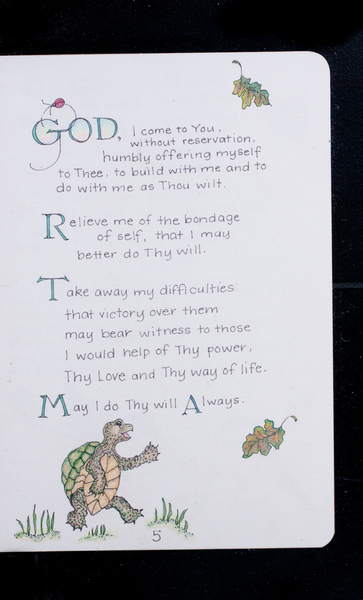 GOD, I come to You,
without reservation,
humbly offering myself
to Thee, to build with me and to
do with me as Thou wilt.
Relieve me of the bondage
of self, that I may
better do Thy will.
Take away my difficulties
that victory over them
may bear witness to those
I would help of Thy power,
Thy Love and Thy way of life.
May I do Thy will Always.
5